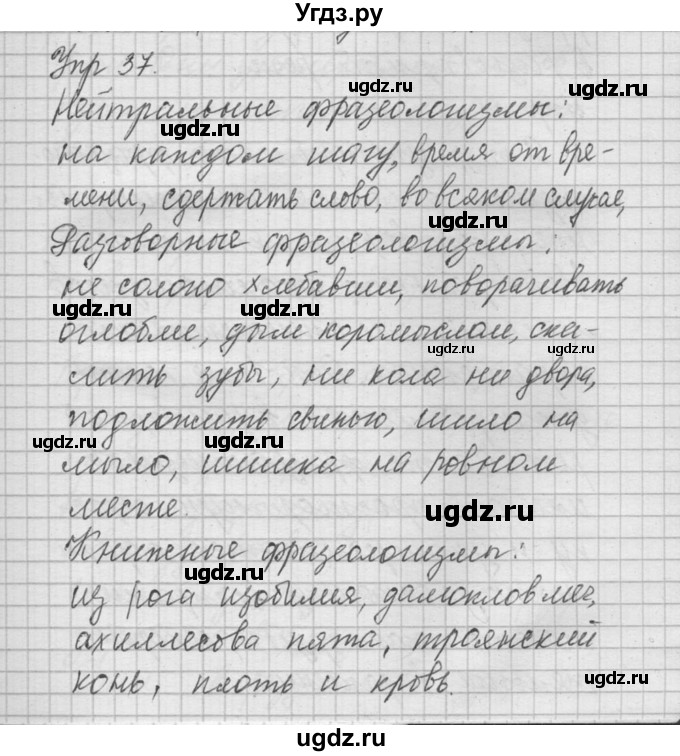 Угдз.ру
Упр 37.
Нейтральные фразеологизмы:
ugdz.ru
на каждом шагу, время от вре-
мени, сдержать слово, во всяком случае,
ugdz.ru
Разговорные фразеологизмы:
не солоно хлебавши, поворачивать
ugdz.ru
оглобли, дым коромыслом, ска-
ugdz.ru ugdz.ru
лить зубы, ни кола ни двора,
подложить свинью, шило на
ugdz.ru ugdz.ru
мыло, шишка на ровном
месте.
ugdz.ru
Книжные фразеологизмы:
ugdz.ru
из рога изобилия, дамоклов меч,
ахиллесова пята, троянский
ugdz.ru
конь, плоть и кровь.
ugdz.ru
Угдз.ру